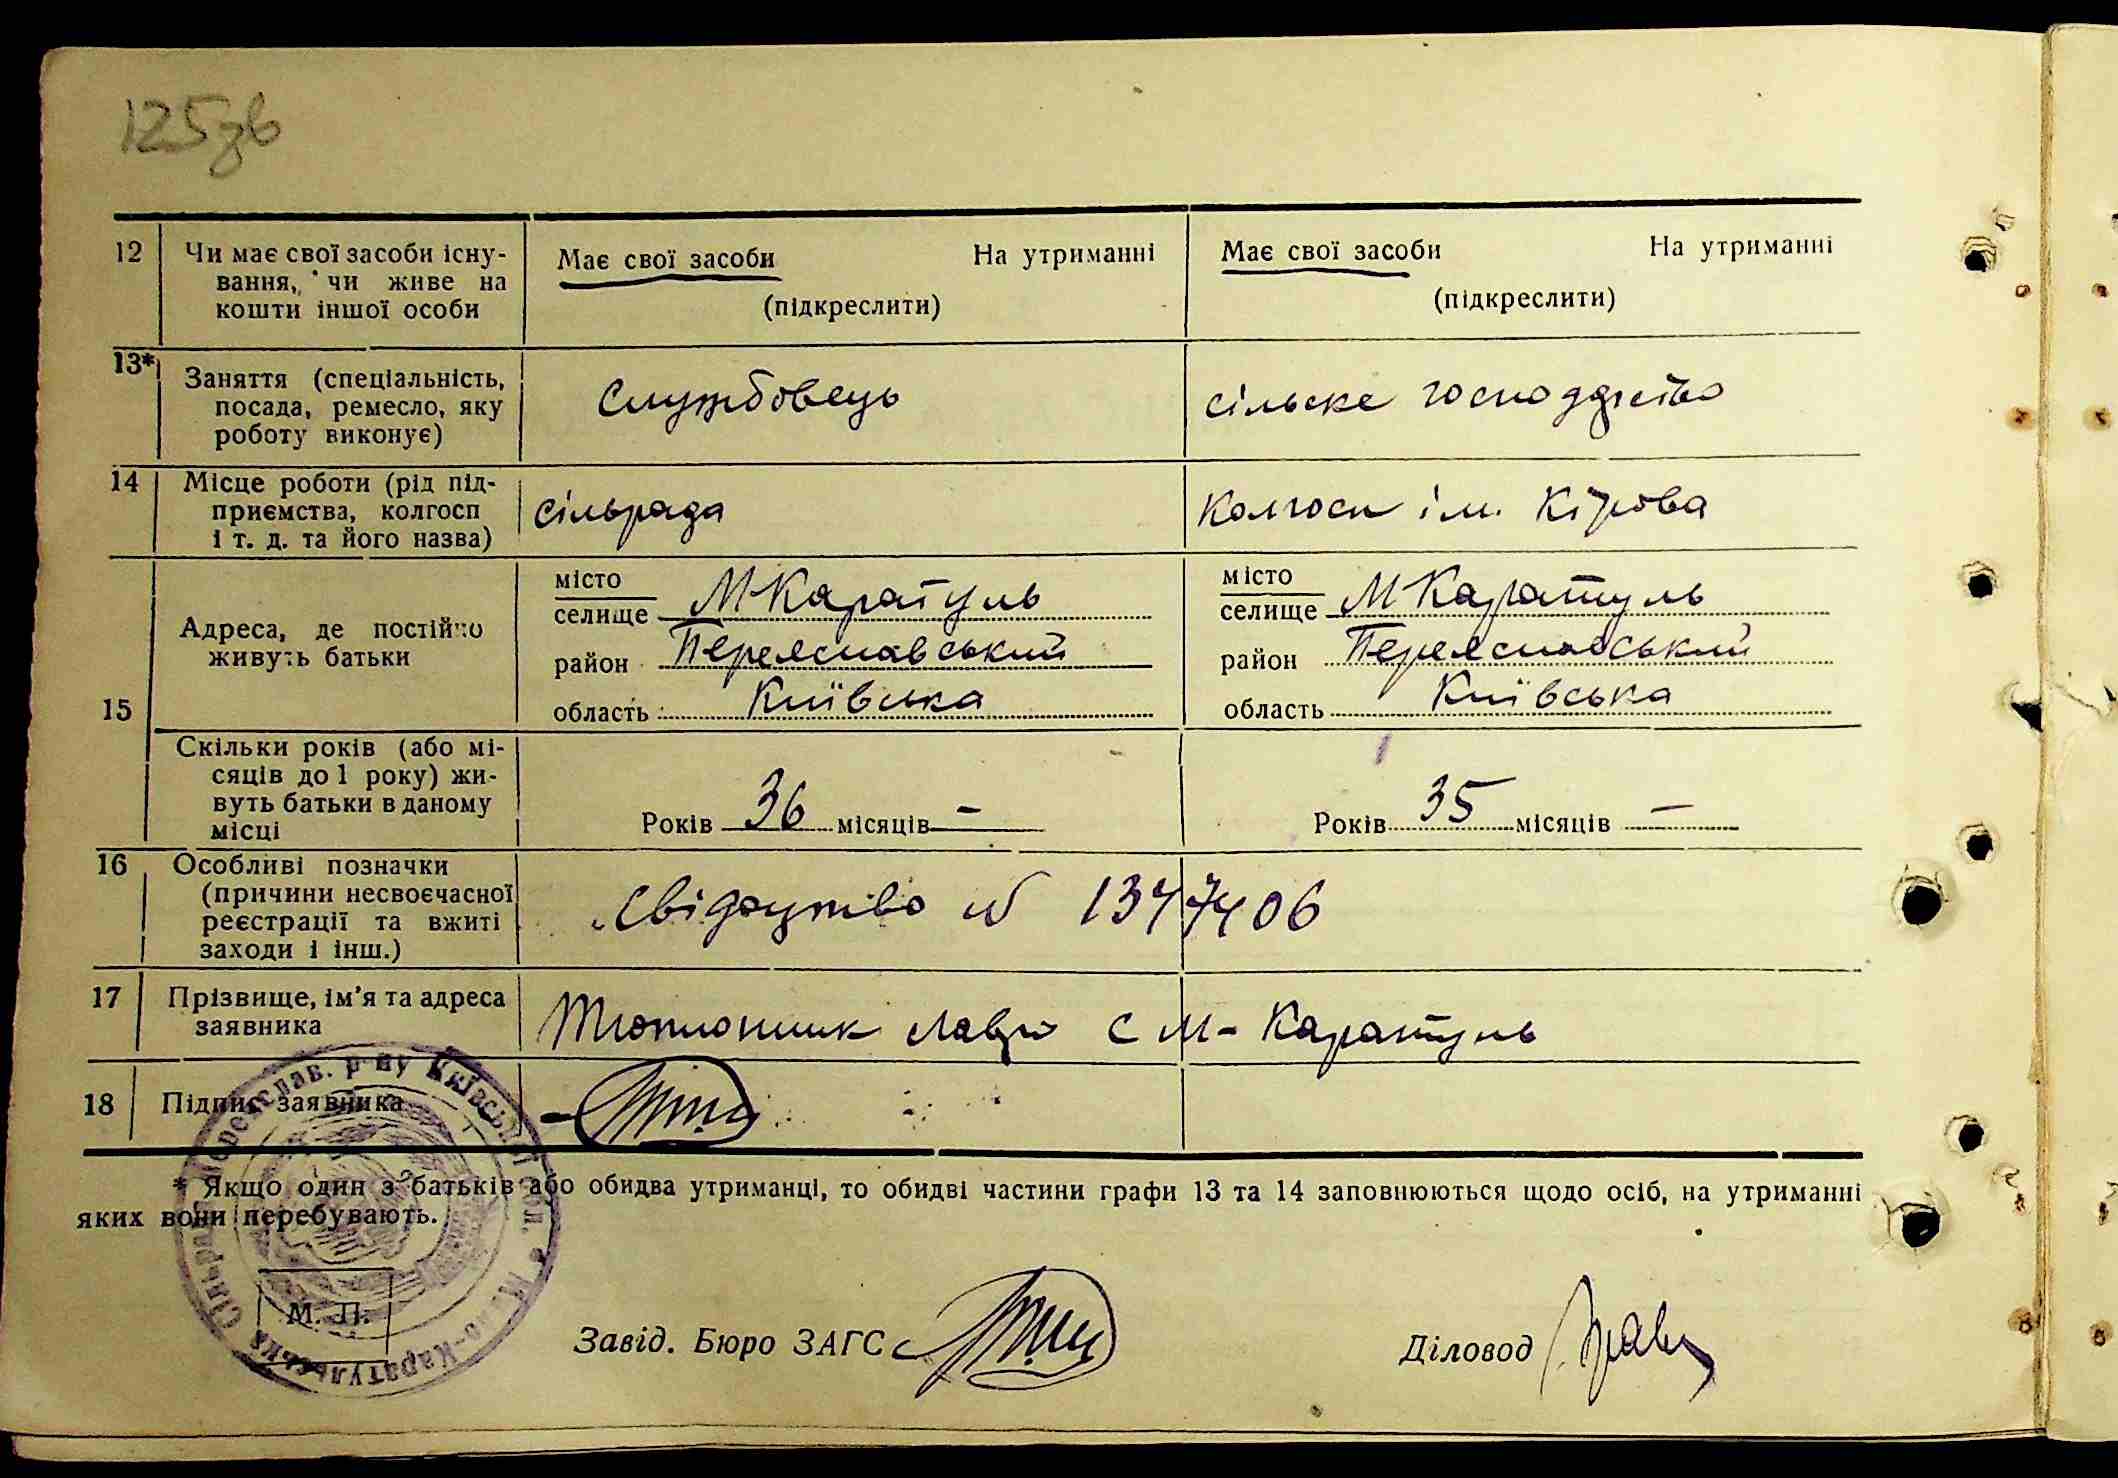 125зв
12 Чи має свої засоби існу- Має свої засоби На утриманні Має свої засоби На утриманні
вання, чи живе на
кошти іншої особи (підкреслити) (підкреслити)
13* Заняття (спеціальність, Службовець сільське господарство
посада, ремесло, яку
роботу виконує)
14 Місце роботи (рід під- сільрада Колгосп ім. Кірова
приємства, колгосп
і т. д. та його назва)
15 Адреса, де постійно
живуть батьки
місто
селище М Каратуль
район Переяславський
область Київська
місто
селище М Каратуль
район Переяславський
область Київська
Скільки років (або мі-
сяців до 1 року) жи-
вуть батьки в даному
місці
Років 36 місяців — Років 35 місяців —
16 Особливі позначки
(причини несвоєчасної
реєстрації та вжиті
заходи і інш.)
Свідоцтво № 1347406
17 Прізвище, ім'я та адреса
заявника
Тютюнник Лавро с М-Каратуль
18 Підпис заявника
* Якщо один з батьків або обидва утриманці, то обидві частини графи 13 та 14 заповнюються щодо осіб, на утриманні
яких вони перебувають.
М. П.
Завід. Бюро ЗАГС Діловод
Мало-Каратульська Сільрада Переяслав. р-ну Київської обл.